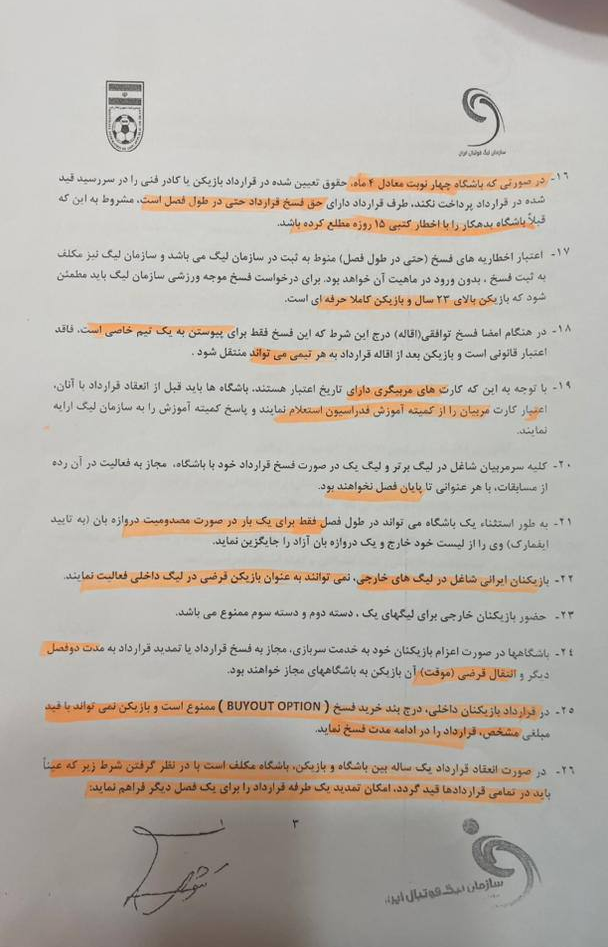 سازمان لیگ فوتبال ایران
۱۶- در صورتی که باشگاه چهار نوبت معادل ۴ ماه، حقوق تعیین شده در قرارداد بازیکن یا کادر فنی را در سررسید قید
شده در قرارداد پرداخت نکند، طرف قرارداد دارای حق فسخ قرارداد حتی در طول فصل است، مشروط به این که
قبلاً باشگاه بدهکار را با اخطار کتبی ۱۵ روزه مطلع کرده باشد.
۱۷- اعتبار اخطاریه های فسخ (حتی در طول فصل) منوط به ثبت در سازمان لیگ می باشد و سازمان لیگ نیز مکلف
به ثبت فسخ ، بدون ورود در ماهیت آن خواهد بود. برای درخواست فسخ موجه ورزشی سازمان لیگ باید مطمئن
شود که بازیکن بالای ۲۳ سال و بازیکن کاملا حرفه ای است.
۱۸- در هنگام امضا فسخ توافقی(اقاله) درج این شرط که این فسخ فقط برای پیوستن به یک تیم خاصی است، فاقد
اعتبار قانونی است و بازیکن بعد از اقاله قرارداد به هر تیمی می تواند منتقل شود .
۱۹- با توجه به این که کارت های مربیگری دارای تاریخ اعتبار هستند، باشگاه ها باید قبل از انعقاد قرارداد با آنان،
اعتبار کارت مربیان را از کمیته آموزش فدراسیون استعلام نمایند و پاسخ کمیته آموزش را به سازمان لیگ ارایه
نمایند.
۲۰- کلیه سرمربیان شاغل در لیگ برتر و لیگ یک در صورت فسخ قرارداد خود با باشگاه، مجاز به فعالیت در آن رده
از مسابقات، با هر عنوانی تا پایان فصل نخواهند بود.
۲۱- به طور استثناء یک باشگاه می تواند در طول فصل فقط برای یک بار در صورت مصدومیت دروازه بان (به تایید
ایفمارک) وی را از لیست خود خارج و یک دروازه بان آزاد را جایگزین نماید.
۲۲- بازیکنان ایرانی شاغل در لیگ های خارجی، نمی توانند به عنوان بازیکن قرضی در لیگ داخلی فعالیت نمایند.
۲۳- حضور بازیکنان خارجی برای لیگهای یک ، دسته دوم و دسته سوم ممنوع می باشد.
۲۴- باشگاهها در صورت اعزام بازیکنان خود به خدمت سربازی، مجاز به فسخ قرارداد یا تمدید قرارداد به مدت دوفصل
دیگر و انتقال قرضی (موقت) آن بازیکن به باشگاههای مجاز خواهند بود.
۲۵- در قرارداد بازیکنان داخلی، درج بند خرید فسخ ( BUYOUT OPTION ) ممنوع است و بازیکن نمی تواند با قید
مبلغی مشخص، قرارداد را در ادامه مدت فسخ نماید.
۲۶- در صورت انعقاد قرارداد یک ساله بین باشگاه و بازیکن، باشگاه مکلف است با در نظر گرفتن شرط زیر که عیناً
باید در تمامی قراردادها قید گردد، امکان تمدید یک طرفه قرارداد را برای یک فصل دیگر فراهم نماید:
۳
سازمان لیگ فوتبال ایران